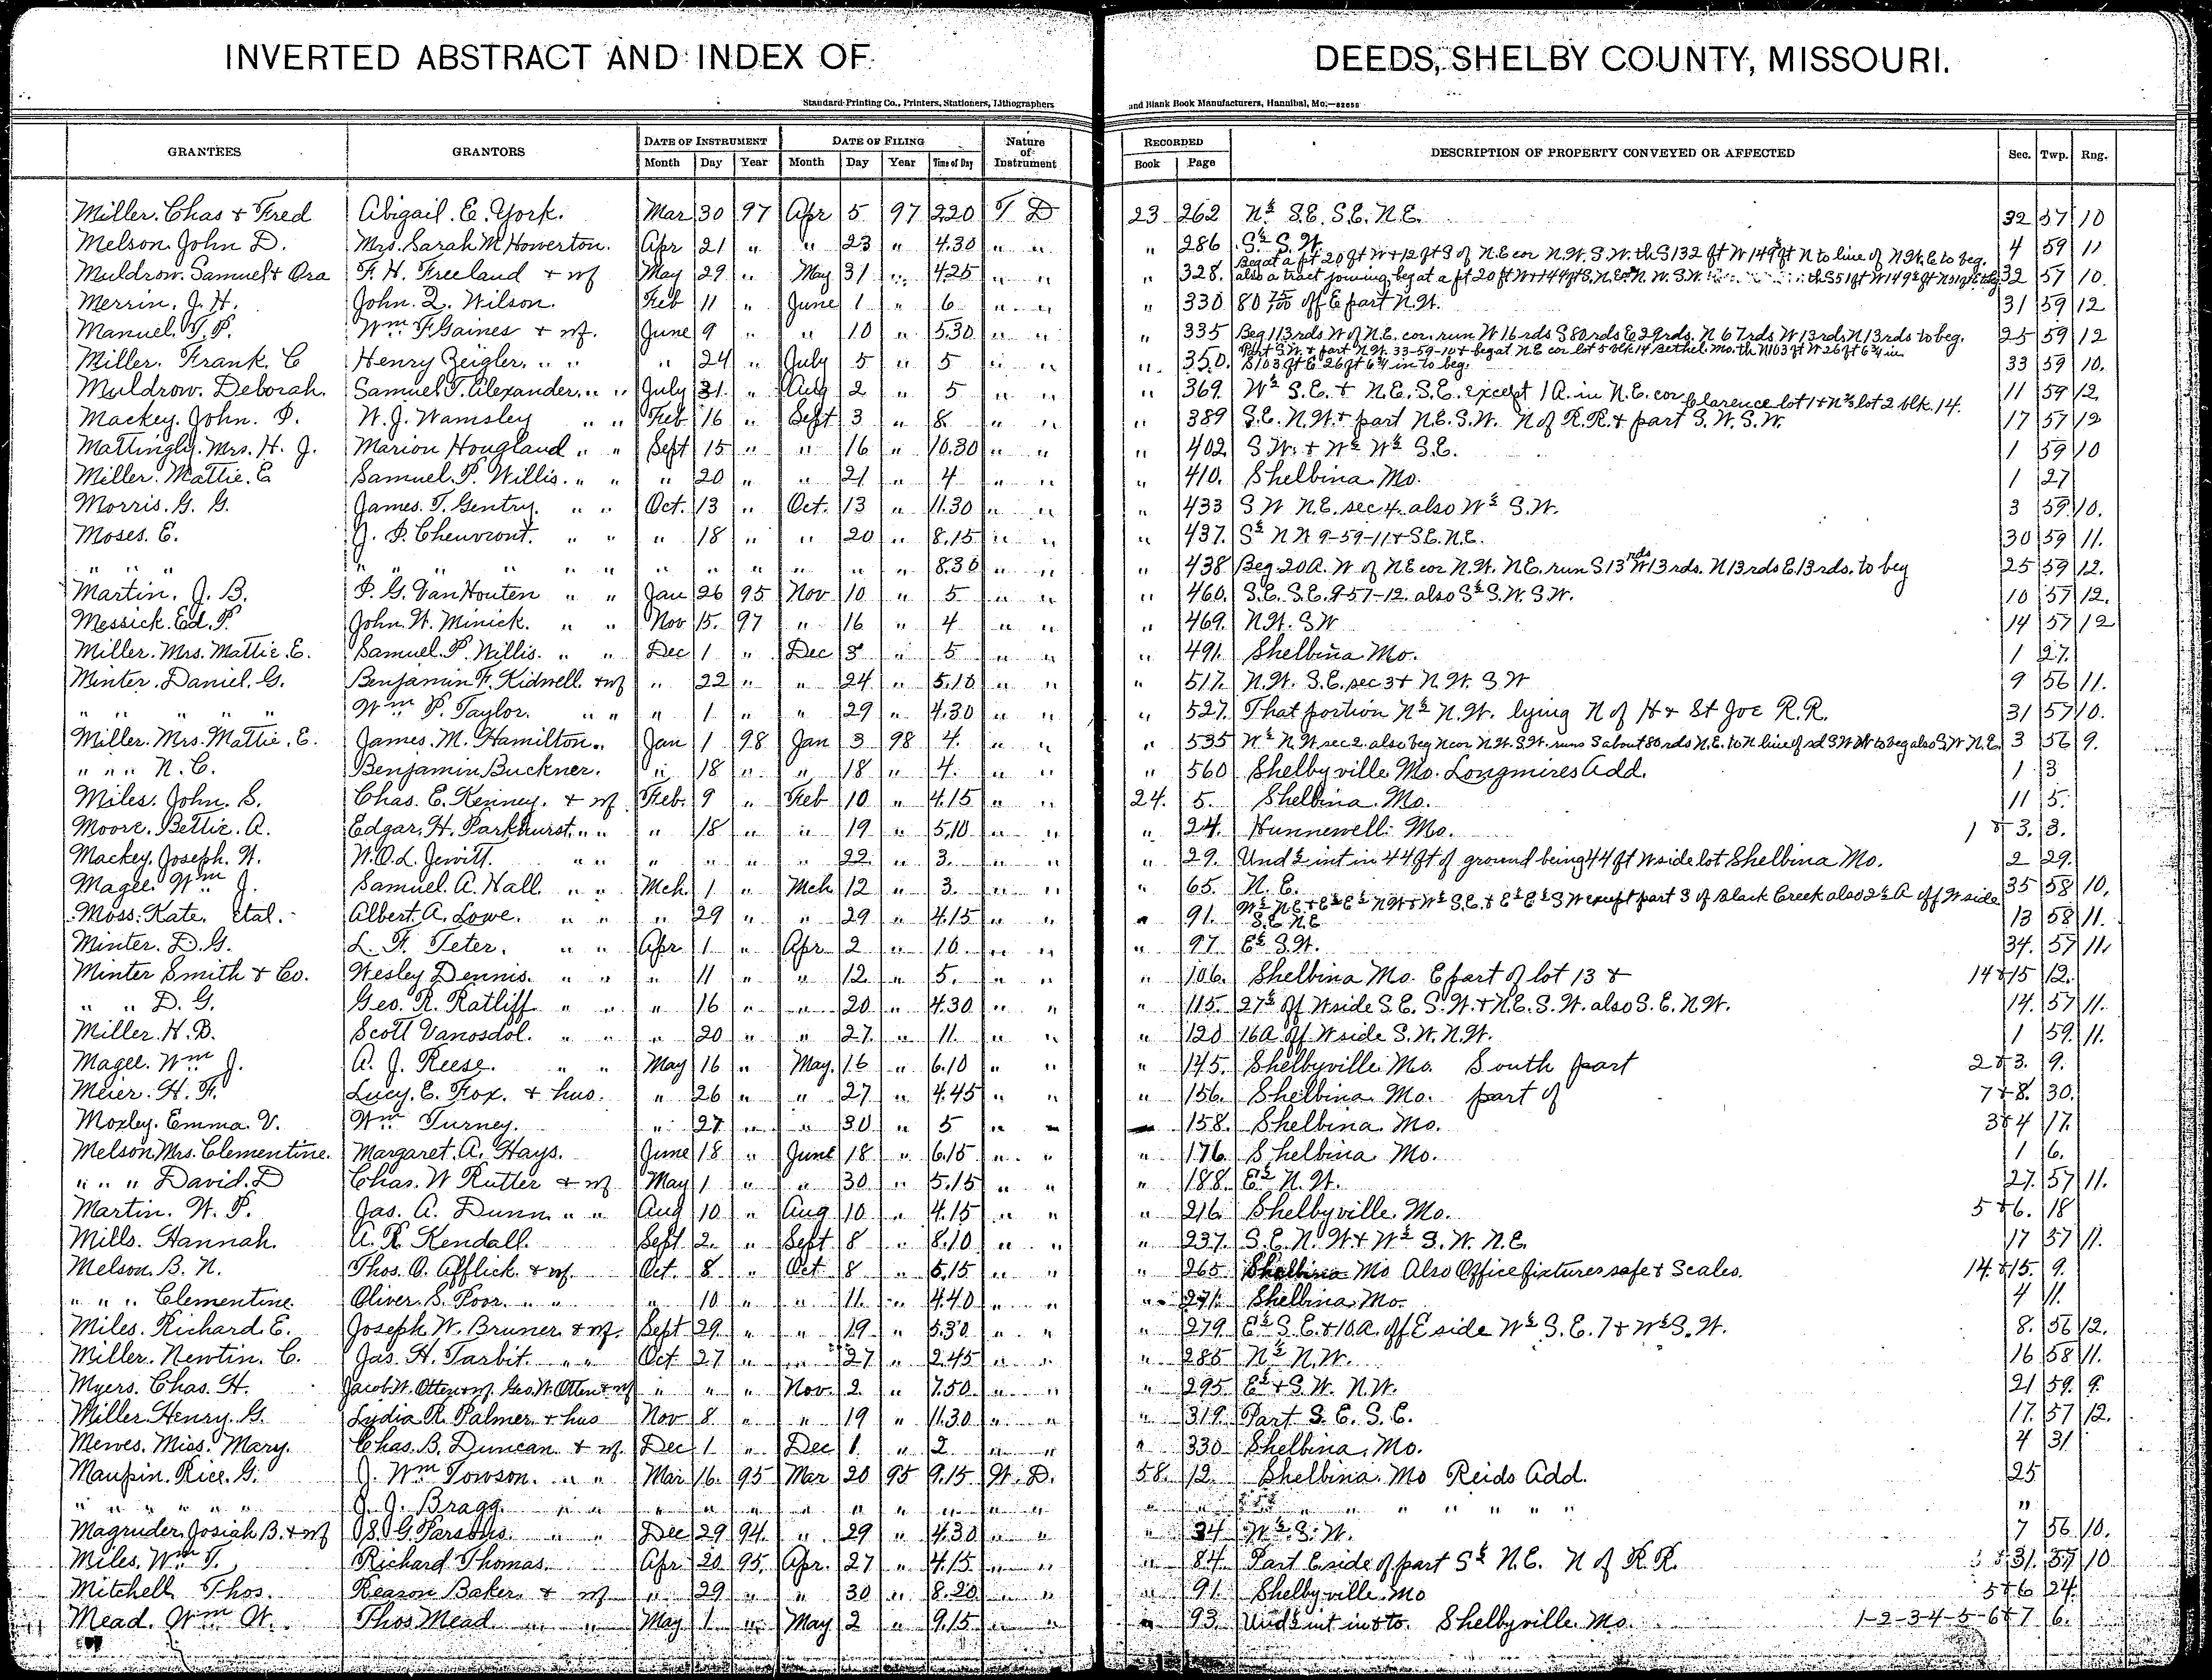 INVERTED ABSTRACT AND INDEX OF DEEDS, SHELBY COUNTY, MISSOURI.
Standard Printing Co., Printers, Stationers, Lithographers and Blank Book Manufacturers, Hannibal, Mo.
GRANTEES GRANTORS DATE OF INSTRUMENT DATE OF FILING Nature of Instrument RECORDED DESCRIPTION OF PROPERTY CONVEYED OR AFFECTED Sec. Twp. Rng.
Month Day Year Month Day Year Time of Day Book Page
Miller. Chas & Fred Abigail. E. York. Mar 30 97 Apr 5 97 2.20 T D 23 262 N½ S.E. S.E. N.E. 32 57 10
Melson John D. Mrs. Sarah M. Howerton. Apr 21 " " 23 " 4.30 " " " 286 S½ S.W. 4 59 11
Muldrow. Samuel & Ora F. H. Freeland & wf May 29 " May 31 " 4.25 " " " 328. Beg at a pt 20 ft W & 12 ft S of N.E cor N.W. S.W. th S 132 ft W 149½ ft N to line of N.W. E to beg. also a tract joining, beg at a pt 20 ft W & 144 ft S. N.E cor N.W. S.W. th S 51 ft W 149½ ft 32 57 10.
Merrin. J. H. John. Q. Wilson. Feb 11 " June 1 " 6 " " " 330 80 off E part N.W. 31 59 12
Manuel. T. P. Wm F. Gaines & wf. June 9 " " 10 " 5.30 " " " 335 Beg 113 rds W of N.E. cor. run W 16 rds S 80 rds E 29 rds. N 67 rds W 13 rds N 13 rds to beg. 25 59 12
Miller. Frank. C Henry Zeigler. " " " 24 " July 5 " 5 " " " 350. Part S.W. & part N.W. 33-59-10 & beg at N.E cor lot 5 blk 14 Bethel. Mo. th N 103 ft W 26 ft 6¾ in S 103 ft E 26 ft 6¾ in to beg. 33 59 10.
Muldrow. Deborah. Samuel. T. Alexander. " " July 31 " Aug 2 " 5 " " " 369. W½ S.E. & N.E. S.E. except 1 A. in N.E. cor 11 59 12
Mackey. John. P. W. J. Wamsley " " Feb 16 " Sept 3 " 8 " " " 389 S.E. N.W. & part N.E. S.W. N of R.R. & part S.W. S.W. Clarence lot 1 & N⅔ lot 2 blk. 14. 17 57 12
Mattingly. Mrs. H. J. Marion Hougland " " Sept 15 " " 16 " 10.30 " " " 402 S.W. & W½ W½ S.E. 1 59 10
Miller. Mattie. E Samuel. P. Willis. " " " 20 " " 21 " 4 " " " 410. Shelbina. Mo. 1 27
Morris. G. G. James. T. Gentry. " " Oct. 13 " Oct. 13 " 11.30 " " " 433 S W N.E. sec 4. also W½ S.W. 3 59 10.
Moses. E. J. P. Cheuvront. " " " 18 " " 20 " 8.15 " " " 437. S½ N W 9-59-11 & S.E. N.E. 30 59 11.
" " " " " " " " " " " " " " 8.30 " " " 438 Beg. 20 A. W of N E cor N.W. N.E. run S. 13 rds W 13 rds. N 13 rds E. 13 rds. to beg 25 59 12.
Martin. J. B. P. G. VanHouten " " Jan 26 95 Nov 10 " 5 " " " 460. S.E. S.E. 9-57-12. also S½ S.W. S.W. 10 57 12.
Messick. Ed. P. John. W. Minick. " " Nov 15. 97 " 16 " 4 " " " 469. N.W. S W 14 57 12
Miller. Mrs. Mattie. E. Samuel. P. Willis. " " Dec 1 " Dec 3 " 5 " " " 491. Shelbina Mo. 1 27.
Minter. Daniel. G. Benjamin F. Kidwell. & wf " 22 " " 24 " 5.10 " " " 517. N.W. S.E. sec 3 & N.W. S W 9 56 11.
" " " " Wm P. Taylor. " " " 1 " " 29 " 4.30 " " " 527. That portion N½ N.W. lying N of H & St Joe R.R. 31 57 10.
Miller. Mrs. Mattie. E. James. M. Hamilton. Jan 1 98 Jan 3 98 4. " " " 535 W½ N.W. sec 2. also beg N cor N.W. S.W. runs S about 80 rds N.E. to N line of sd S W W to beg also S.W N.E. 3 56 9.
" " " N. C. Benjamin Buckner. " 18 " " 18 " 4. " " " 560 Shelbyville Mo. Longmires Add. 1 3
Miles. John. S. Chas. E. Kenney. & wf. Feb. 9 " Feb 10 " 4.15 " " 24. 5. Shelbina. Mo. 11 5.
Moore. Bettie. A. Edgar. H. Parkhurst. " " " 18 " " 19 " 5.10 " " " 24. Hunnewell. Mo. 1 & 3. 3.
Mackey. Joseph. W. W. O. L. Jewitt. " " " " " " 22 " 3. " " " 29. Und ½ int in 44 ft of ground being 44 ft W side lot Shelbina Mo. 2 29.
Magee. Wm J. Samuel. A. Hall. " " Mch. 1 " Mch 12 " 3. " " " 65. N. E. 35 58 10.
Moss. Kate. etal. Albert. A. Lowe. " " " 29 " " 29 " 4.15 " " " 91. W½ N.E & E½ E½ N W & W½ S.E. & E½ E½ S W except part S of Black Creek also 2½ A off W side S.E N.E 13 58 11.
Minter. D. G. L. F. Teter. " " Apr 1 " Apr 2 " 10. " " " 97. E½ S.W. 34. 57 11.
Minter Smith & Co. Wesley Dennis. " " " 11 " " 12 " 5. " " " 106. Shelbina Mo. E part of lot 13 & 14 & 15 12.
" " D. G. Geo. R. Ratliff " " " 16 " " 20 " 4.30 " " " 115. 27½ off W side S.E. S.W. & N.E. S.W. also S.E. N.W. 14. 57 11.
Miller. H. B. Scott Vanosdol. " " " 20 " " 27. " 11. " " " 120 16 A. off W side S.W. N.W. 1 59. 11.
Magee. Wm J. A. J. Reese. " " May 16 " May. 16 " 6.10 " " " 145. Shelbyville Mo. South part 2 & 3. 9.
Meier. H. F. Lucy. E. Fox. & hus. " 26 " " 27 " 4.45 " " " 156. Shelbina. Mo. part of 7 & 8. 30.
Moxley. Emma. V. Wm Turney. " 27 " " 30 " 5 " " " 158. Shelbina. Mo. 3 & 4 17.
Melson Mrs. Clementine. Margaret. A. Hays. June 18 " June 18 " 6.15 " " " 176. Shelbina Mo. 1 6.
" " " David. D Chas. W Rutter & wf May 1 " " 30 " 5.15 " " " 188. E½ N.W. 27. 57 11.
Martin. W. P. Jas. A. Dunn. " " Aug 10 " Aug 10 " 4.15 " " " 216. Shelbyville. Mo. 5 & 6. 18
Mills. Hannah. A. R. Kendall. Sept 2. " Sept 8 " 8.10 " " " 237. S.E. N.W. & W½ S.W. N.E. 17 57 11.
Melson. B. N. Thos. O. Afflick. & wf. Oct. 8 " Oct 8 " 5.15 " " " 265 Shelbina Mo Also Office fixtures safe & Scales. 14. & 15. 9.
" " " Clementine. Oliver. S. Poor. " " " 10 " " 11. " 4.40 " " " 271. Shelbina Mo. 4 11.
Miles. Richard. E. Joseph. W. Bruner & wf. Sept 29 " " 19 " 5.30 " " " 279 E½ S.E. & 10 A. off E side W½ S.E. 7 & W½ S.W. 8. 56 12.
Miller. Newtin. C. Jas. H. Tarbit. " " Oct. 27 " " 27 " 2.45 " " " 285 N½ N.W. 16 58 11.
Myers. Chas. H. Jacob W. Otten & wf. Geo. W. Otten & wf " " " Nov. 2. " 7.50. " " " 295 E½ & S.W. N.W. 21 59. 9.
Miller. Henry. G. Lydia R. Palmer. & hus Nov 8 " " 19 " 11.30 " " " 319. Part S.E. S.E. 17. 57 12.
Mewes. Miss. Mary. Chas. B. Duncan & wf. Dec 1 " Dec 1. " 2. " " " 330 Shelbina. Mo. 4 31
Maupin. Rice. G. J. Wm Towson. " " Mar 16. 95 Mar 20 95 9.15 W. D. 58. 12. Shelbina. Mo Reids Add. 25
" " " " " J. J. Bragg. " " " " " " " " " " " " " " " " " " "
Magruder. Josiah B. & wf S. G. Parsons. " " Dec 29 94. " 29 " 4.30 " " " 34 W½ S.W. 7 56 10.
Miles. Wm T. Richard Thomas. Apr 20 95. Apr. 27 " 4.15 " " " 84. Part E side of part S½ N.E. N of R.R. 31. 57 10
Mitchell. Thos. Reason Baker. & wf " 29 " " 30 " 8.20 " " " 91. Shelbyville. Mo 5 & 6 24.
Mead. Wm W. Thos Mead " " May 1 " May 2 " 9.15 " " " 93. Und ½ int in & to. Shelbyville. Mo. 1-2-3-4-5-6 & 7 6.